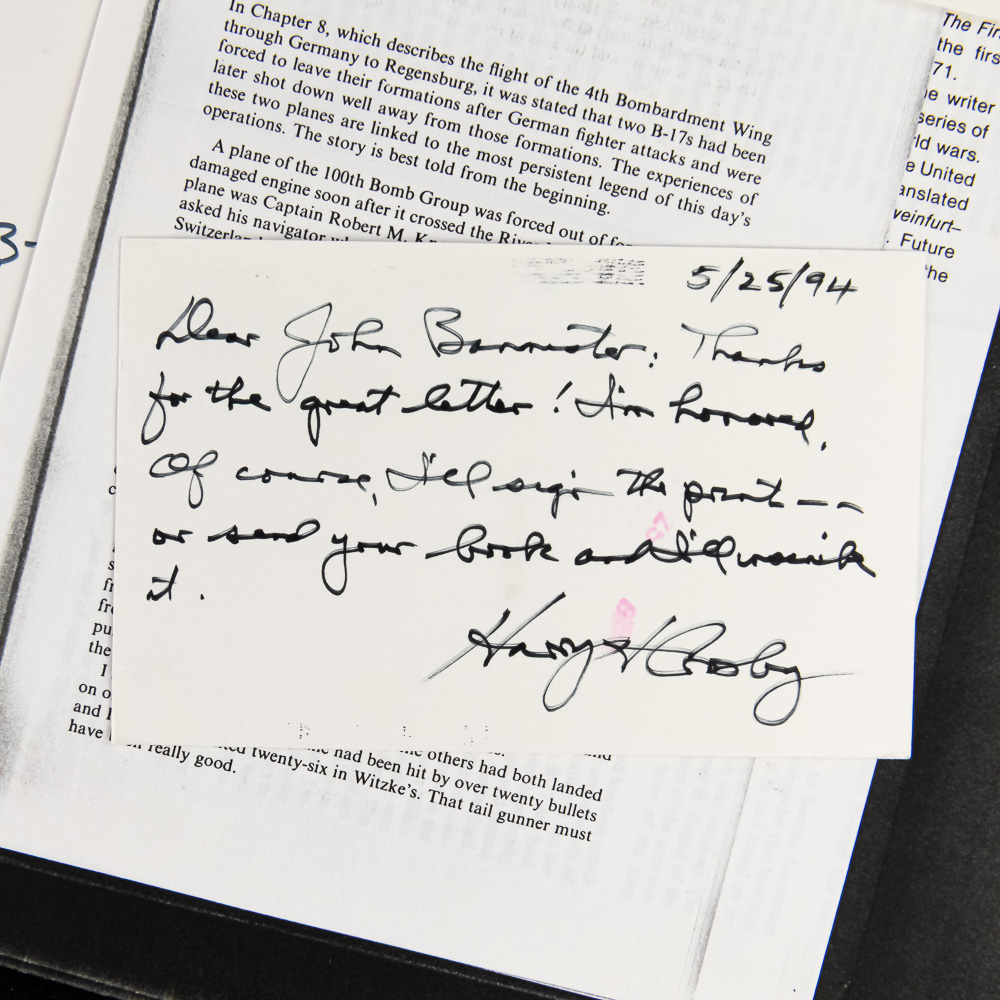 In Chapter 8, which describes the flight of the 4th Bombardment Wing
through Germany to Regensburg, it was stated that two B-17s had been
forced to leave their formations after German fighter attacks and were
later shot down well away from those formations. The experiences of
these two planes are linked to the most persistent legend of this day's
operations. The story is best told from the beginning.
A plane of the 100th Bomb Group was forced out of
damaged engine soon after it crossed the
plane was Captain Robert M.
asked his navigator
The
the
71.
writer
of
wars.
United
Future
the
3-
5/25/94
Dear John Bannister: Thanks
for the great letter! I'm honored.
Of course, I'll sign the print --
or send your book and I'll
it.
Harry H Crosby
the
I
on
and
have
others had both landed
had been hit by over twenty bullets
twenty-six in Witzke's. That tail gunner must
really good.